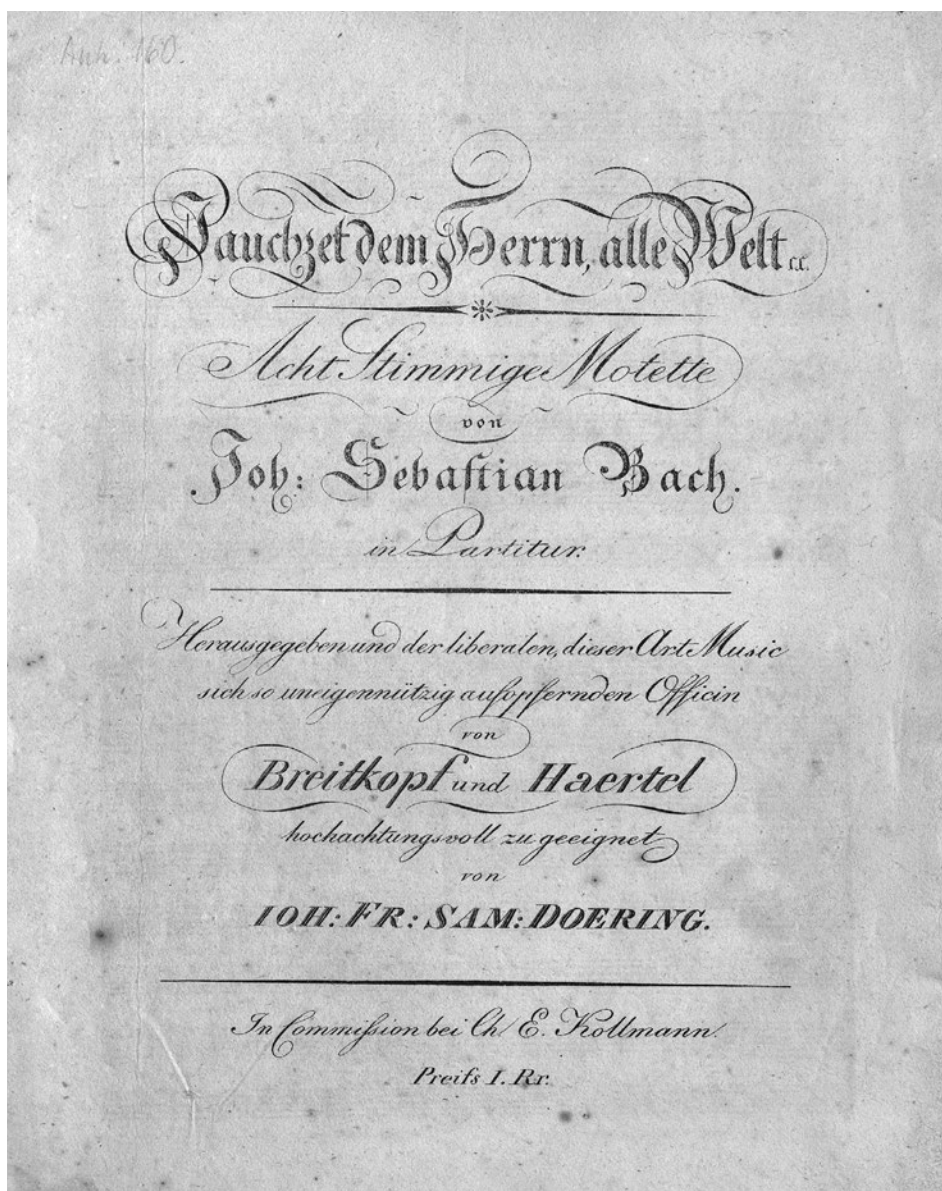 Anh. 160.
Jauchzet dem Herrn, alle Welt ꝛc.
Acht Stimmige Motette
von
Joh: Sebaſtian Bach.
in Partitur.
Herausgegeben und der liberalen, dieser Art Music
sich so uneigennützig aufopfernden Officin
von
Breitkopf und Haertel
hochachtungsvoll zu geeignet
von
IOH: FR: SAM: DOERING.
In Commiſsion bei Ch. E. Kollmann.
Preiſs 1. Rr.